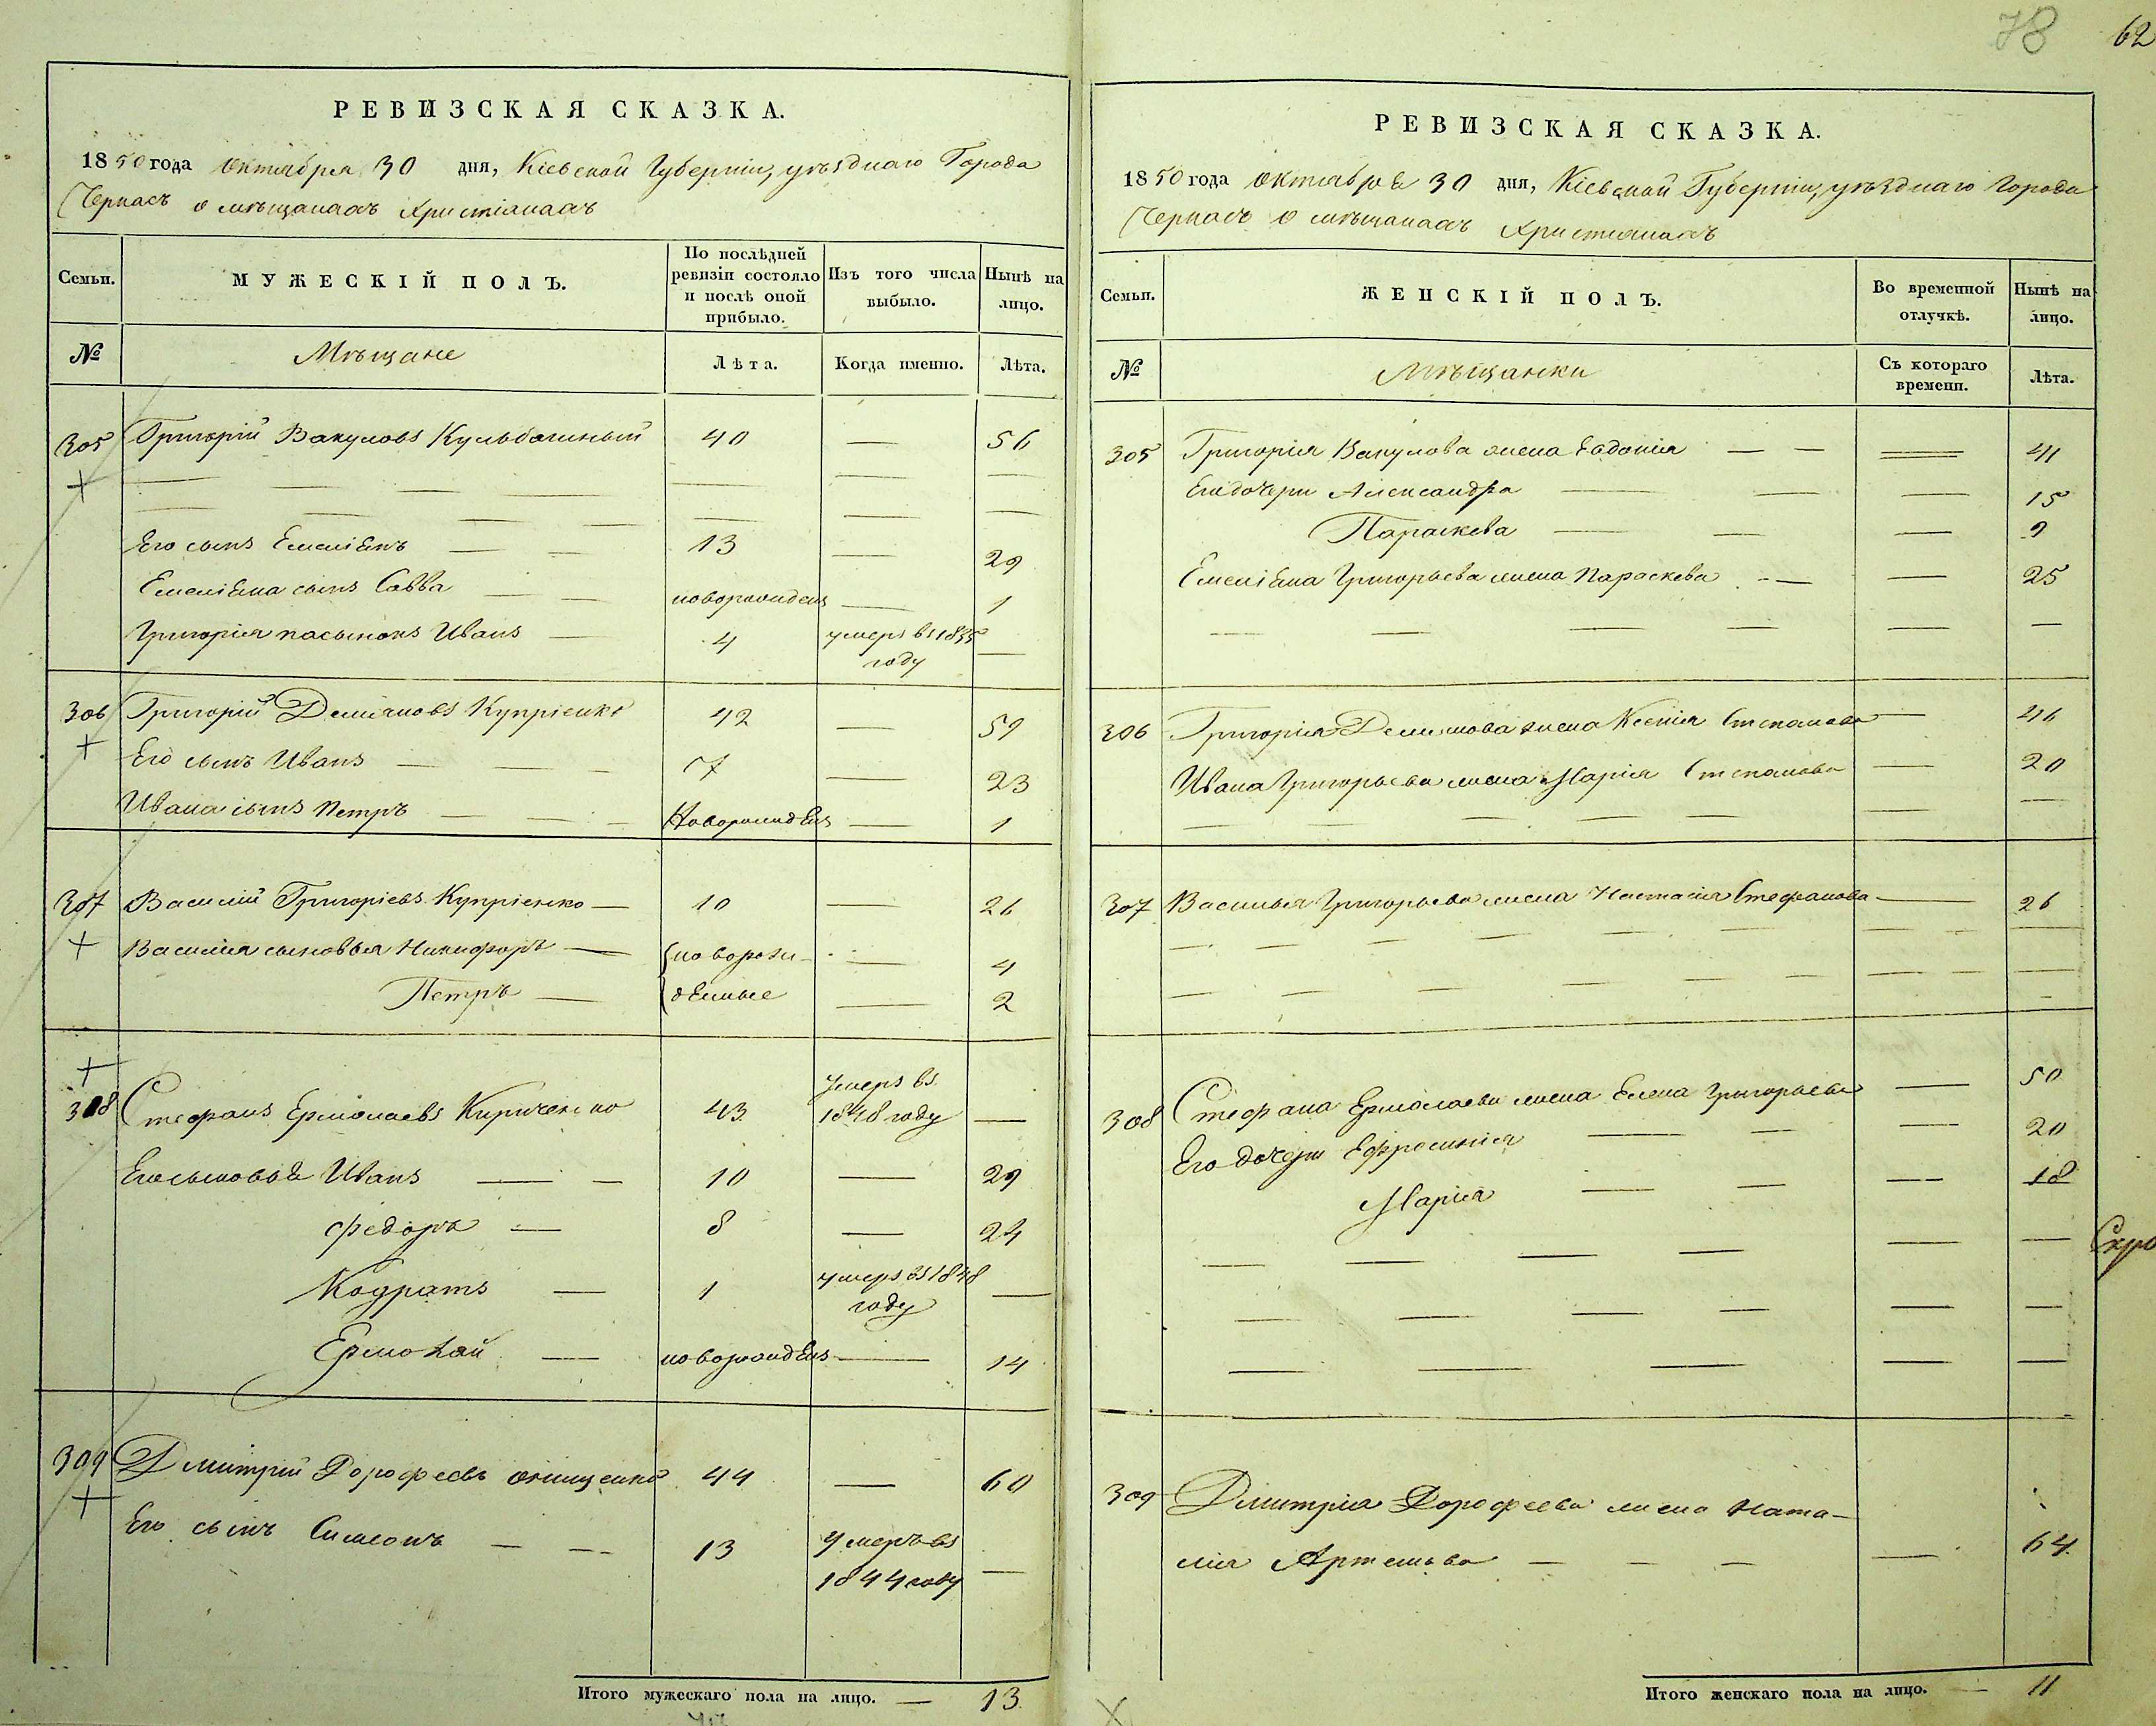 78 62
РЕВИЗСКАЯ СКАЗКА.
1850 года Октября 30 дня, Кіевской Губерніи, уѣзднаго Города
Черкасъ о мѣщанахъ Христіанахъ
Семьи.
МУЖЕСКІЙ ПОЛЪ.
По послѣдней ревизіи состояло и послѣ оной прибыло.
Изъ того числа выбыло.
Нынѣ на лицо.
№
Мѣщане
Лѣта.
Когда именно.
Лѣта.
305 Григорій Вакуловъ Кульбашный 40 — 56
Его сынъ Емеліянъ — — 13 — 29
Емеліяна сынъ Савва — — новорожденъ — 1
Григорія пасынокъ Иванъ — 4 умеръ въ 1835 году —
306 Григорій Деміяновъ Купріенко 42 — 59
Его сынъ Иванъ — — — 7 — 23
Ивана сынъ Петръ — — — Новорожденъ — 1
307 Василій Григоріевъ Купріенко — 10 — 26
Василія сыновья Никифоръ — новорож- — 4
Петръ — денные — 2
308 Стефанъ Ермолаевъ Кириченко 43 Умеръ въ 1848 году —
Его сыновья Иванъ — — 10 — 29
Федоръ — 8 — 24
Кодратъ — 1 умеръ въ 1848 году —
Ермолай — новорожденъ — 14
309 Дмитрій Дорофеевъ Онищенко 44 — 60
Его сынъ Симеонъ — — 13 Умеръ въ 1844 году —
Итого мужескаго пола на лицо. — 13
РЕВИЗСКАЯ СКАЗКА.
1850 года Октября 30 дня, Кіевской Губерніи, уѣзднаго Города
Черкасъ о мѣщанахъ Христіанахъ
Семьи.
ЖЕНСКІЙ ПОЛЪ.
Во временной отлучкѣ.
Нынѣ на лицо.
№
Мѣщанки
Съ котораго времени.
Лѣта.
305 Григорія Вакулова жена Евдокія — — — 41
Его дочери Александра — — — 15
Параскева — — — 9
Емеліяна Григорьева жена Параскева — — 25
306 Григорія Демянова жена Ксенія Степанова — 46
Ивана Григорьева жена Марія Степанова — 20
307 Василья Григорьева жена Настасія Стефанова — 26
308 Стефана Ермолаева жена Елена Григорьева — 50
Его дочери Ефросинія — — — 20
Марія — — — 18
Скрѣ
309 Дмитрія Дорофеева жена Ната-
лія Артемова — — — — 64
Итого женскаго пола на лицо. — 11